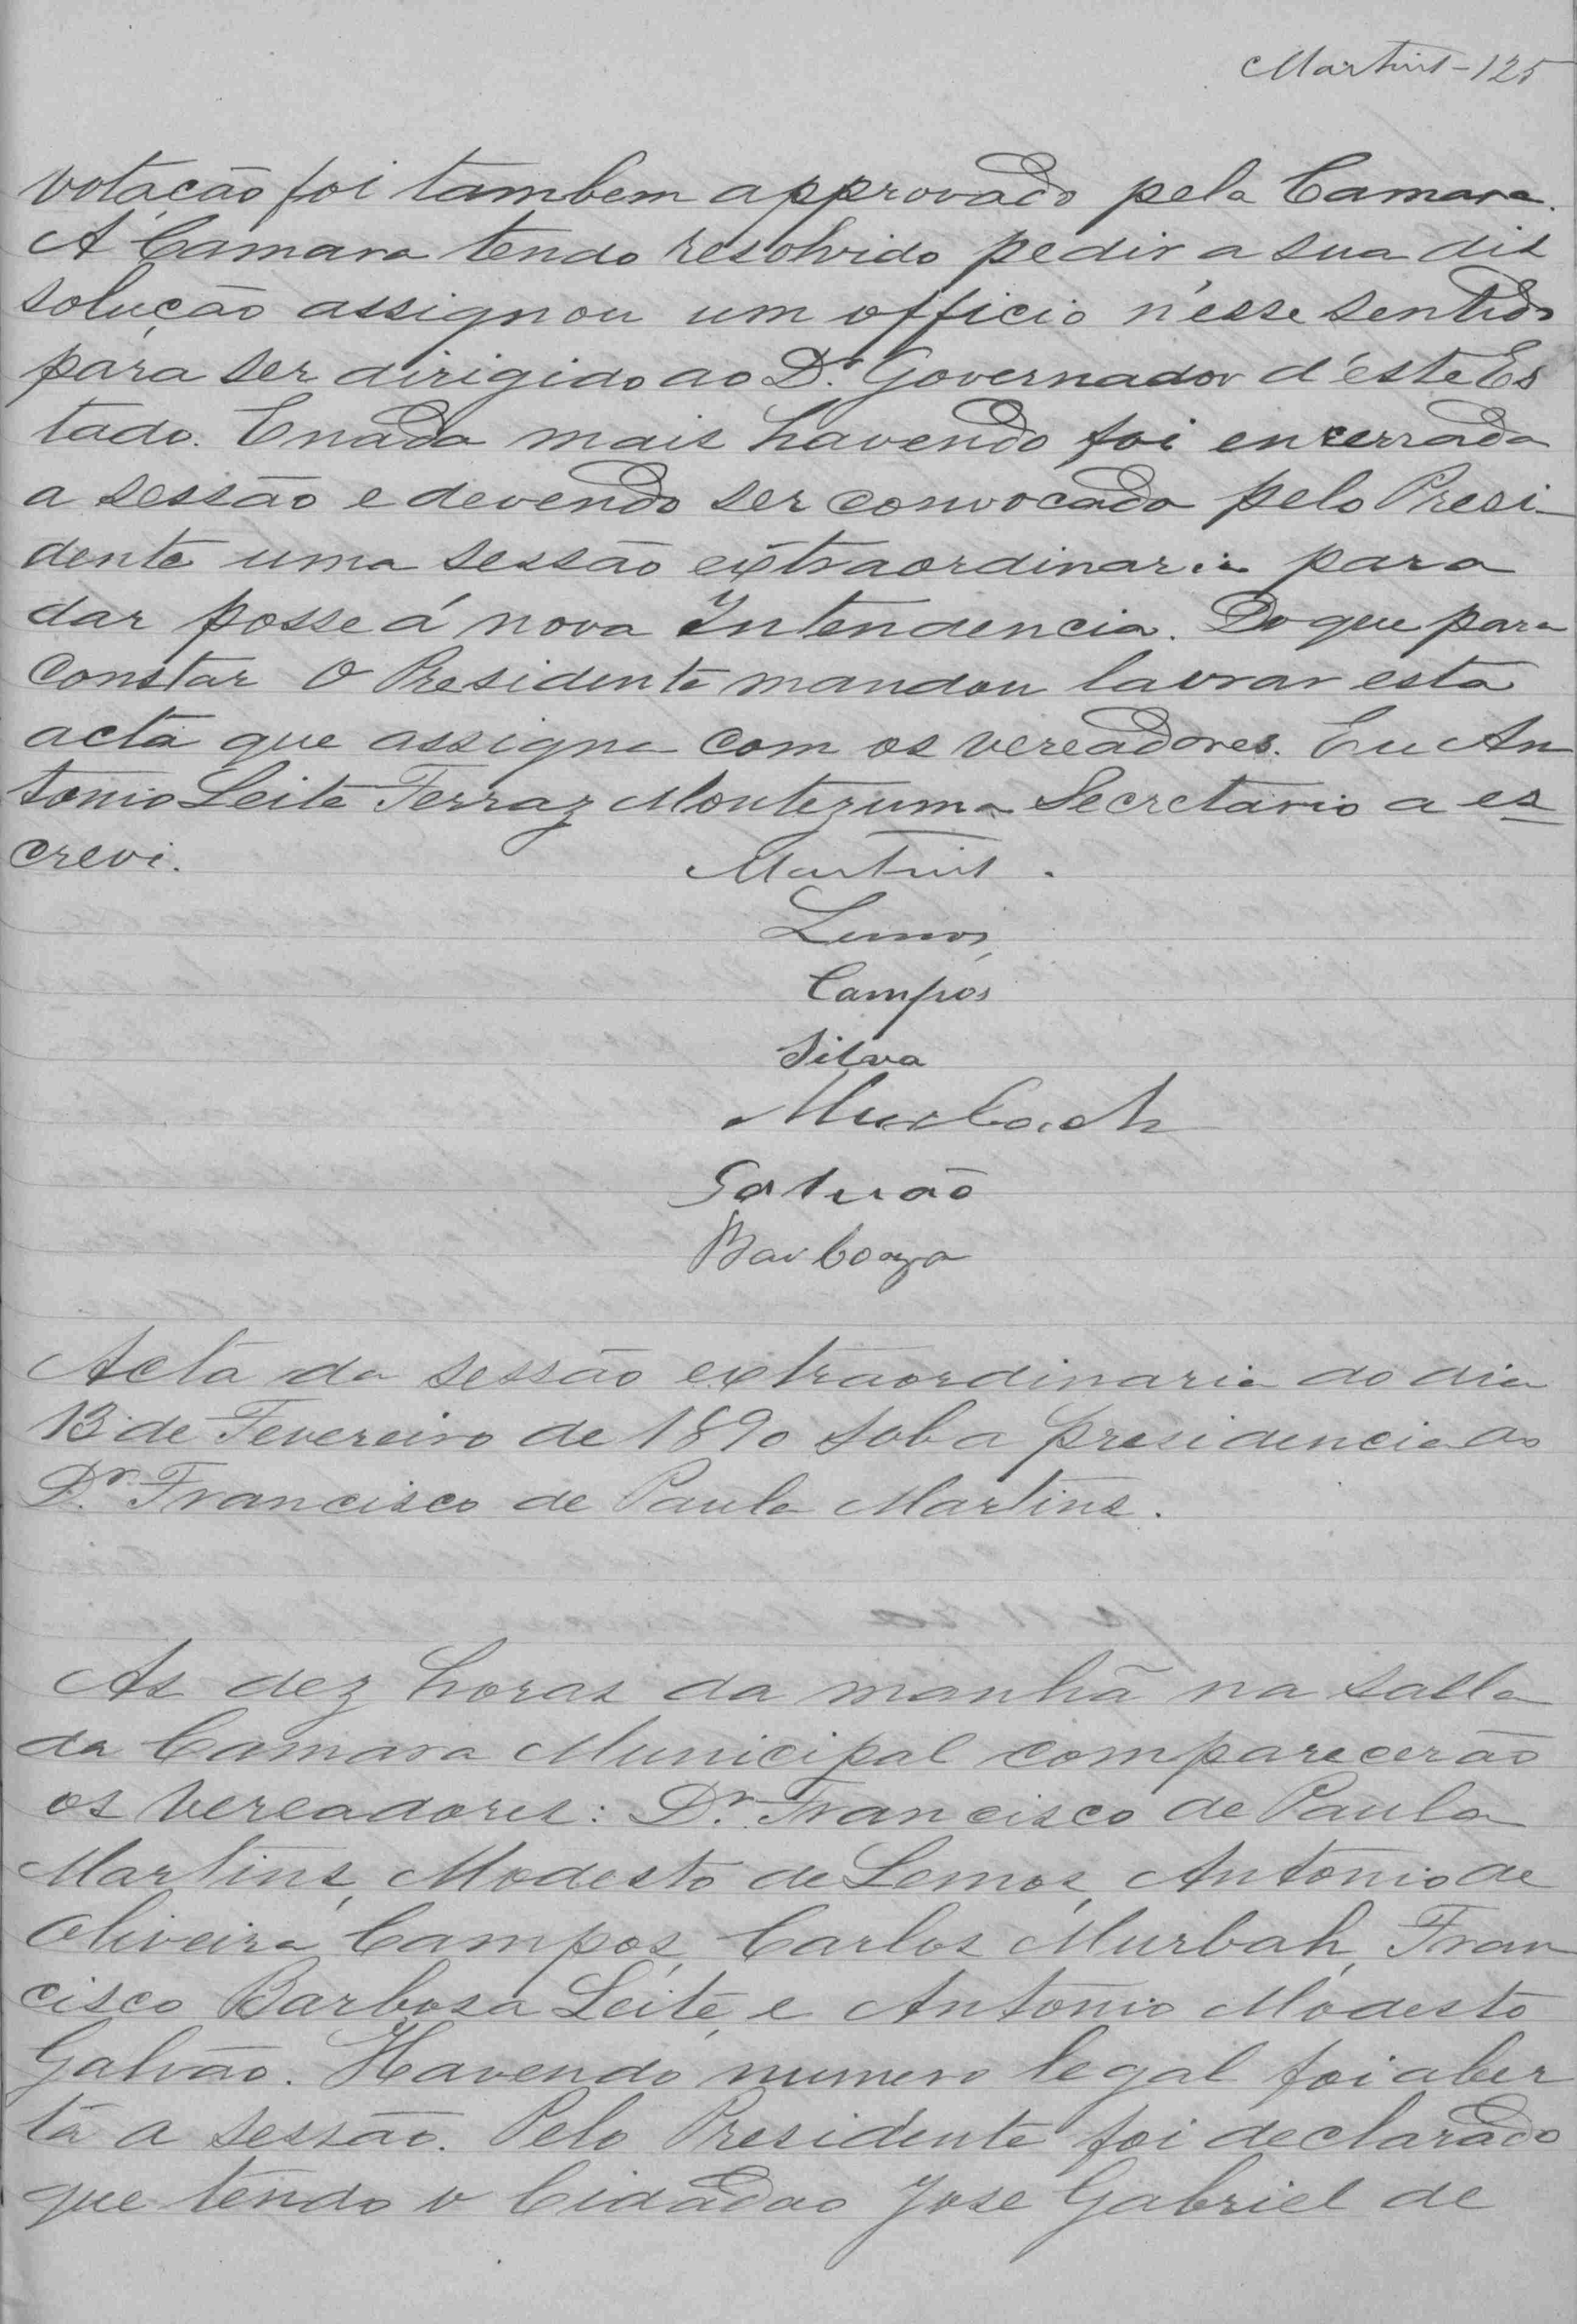 Martins - 125
votação foi tambem approvado pela Camara.
A Camara tendo resolvido pedir a sua dis
solução assignou um officio n'esse sentido
para ser dirigido ao Dr. Governador d'este Es
tado. E nada mais havendo foi encerrada
a sessão e devendo ser convocada pelo Presi-
dente uma sessão extraordinaria para
dar posse á nova Intendencia. Do que para
constar o Presidente mandou lavrar esta
acta que assigna com os vereadores. Eu An
tonio Leite Ferraz Montezuma Secretario a es
crevi.
Martins.
Lemos
Campos
Silva
Murbach
Galvão
Barboza
Acta da sessão extraordinaria do dia
13 de Fevereiro de 1890 sob a presidencia do
Dr. Francisco de Paula Martins.
As dez horas da manhã na salla
da Camara Municipal comparecerão
os vereadores: Dr. Francisco de Paula
Martins, Modesto de Lemos, Antonio de
Oliveira Campos, Carlos Murbah, Fran
cisco Barbosa Leite, e Antonio Modesto
Galvão. Havendo numero legal foi aber
ta a sessão. Pelo Presidente foi declarado
que tendo o Cidadao Jose Gabriel de